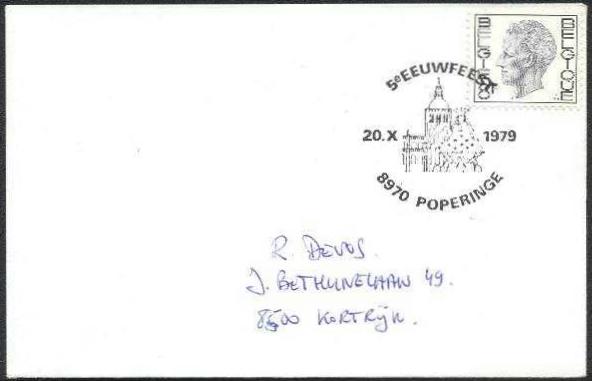 BELGIË
BELGIQUE
5e EEUWFEEST
20.X 1979
8970 POPERINGE
R. DEVOS.
J. BETHUNELAAN 49.
8500 KORTRIJK.